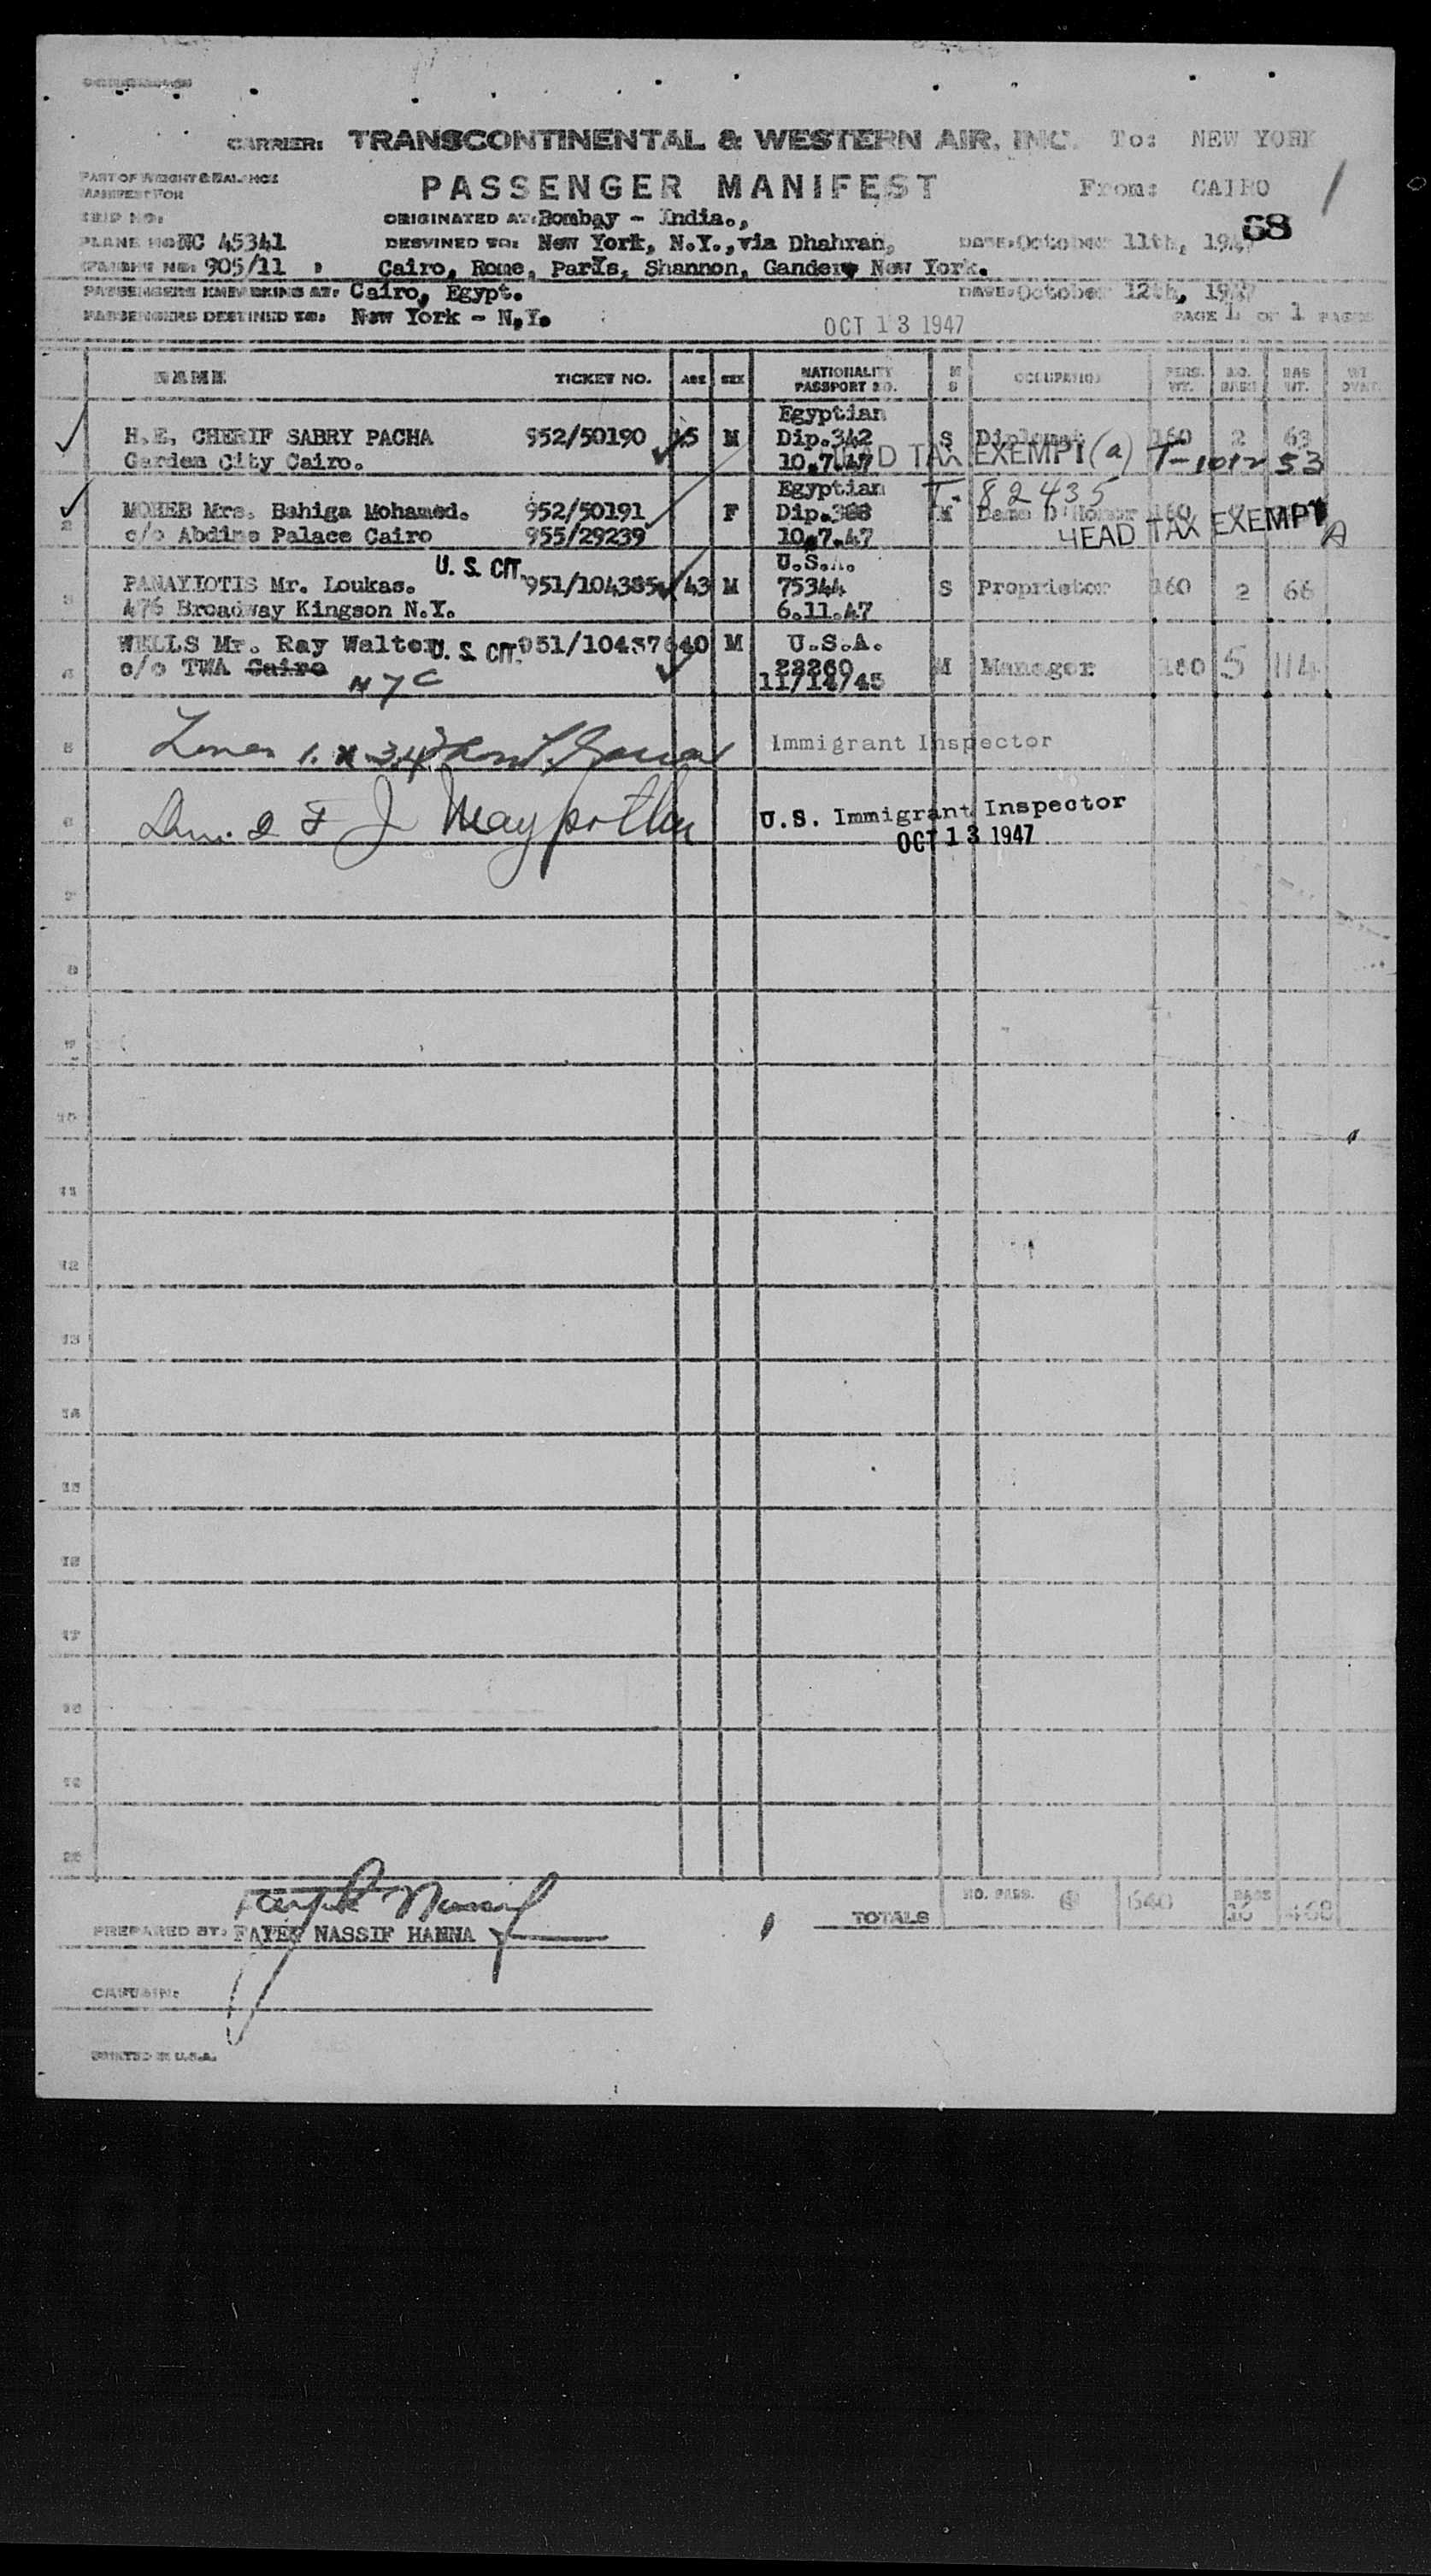 CARRIER: TRANSCONTINENTAL & WESTERN AIR, INC. To: NEW YORK
PART OF WEIGHT & BALANCE
MANIFEST FOR
PASSENGER MANIFEST From: CAIRO
TRIP NO:
ORIGINATED AT: Bombay - India.,
68
PLANE NO NC 45341 DESTINED TO: New York, N.Y., via Dhahran, DATE: October 11th, 194
905/11 Cairo, Rome, Paris, Shannon, Gander, New York.
PASSENGERS EMBARKING AT: Cairo, Egypt. DATE: October 12th, 1947
PASSENGERS DESTINED TO: New York - N.Y. OCT 13 1947 PAGE 1 OF 1 PAGES
NAME TICKET NO. AGE SEX NATIONALITY PASSPORT NO. M S OCCUPATION PERS. WT. NO. BAGS BAG WT.
Egyptian
H.E. CHERIF SABRY PACHA 952/50190 M Dip.342 S Diplomat 160 2 63
Garden City Cairo. 10.7.47 HEAD TAX EXEMPT (a)
Egyptian T- 82435
2 MOHEB Mrs. Bahiga Mohamed. 952/50191 F Dip. M Dame D'Honor 160
c/o Abdine Palace Cairo 955/29239 10.7.47 HEAD TAX EXEMPT A
U.S. CIT. U.S.A.
3 PANAYIOTIS Mr. Loukas. 951/104385 43 M 75344 S Proprietor 160 2 66
476 Broadway Kingson N.Y. 6.11.47
WELLS Mr. Ray Walter U.S. CIT. 951/104376 40 M U.S.A.
4 c/o TWA Cairo 23260 M Manager 160 5 114
NYC 11/14/45
5 Lines 1. 3.4 Immigrant Inspector
6 F J U.S. Immigrant Inspector
OCT 13 1947
7
8
9
10
11
12
13
14
15
16
17
18
19
20
TOTALS NO. PASS. 640 BAGS
PREPARED BY: FAYEK NASSIF HANNA
CAPTAIN:
PRINTED IN U.S.A.